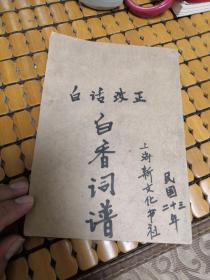 白话改正
白香词谱
上海新文化书社
民國二十三年